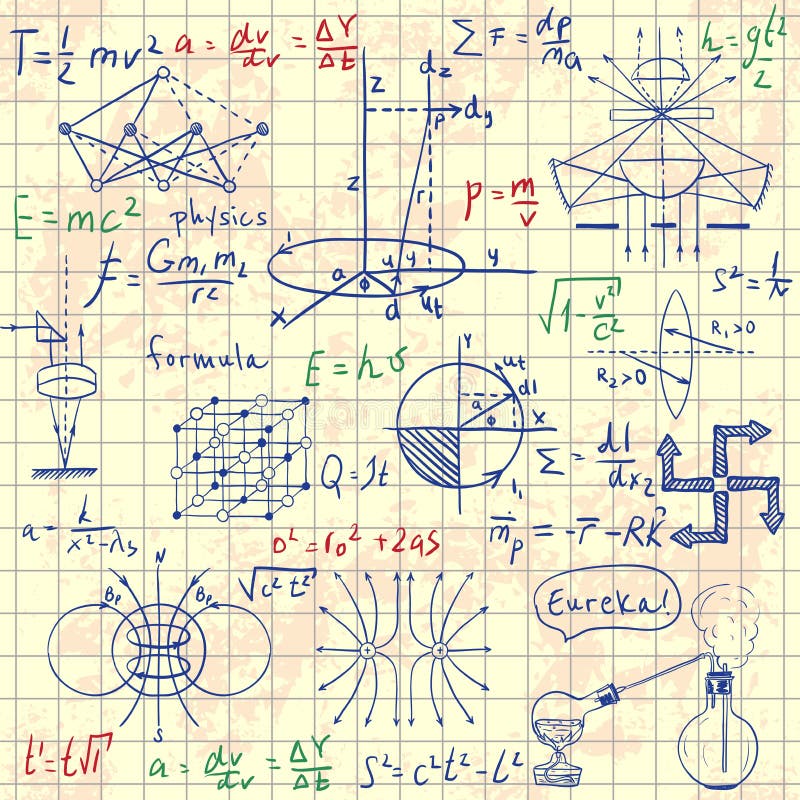 T = 1/2 mv²
a = dv/dv = ΔY/Δt
Σ F = dp/ma
h = gt²/2
z
dz
p
dy
z
r
p = m/v
E = mc²
physics
f = Gm₁m₂/r²
1
a
u
y
y
ϕ
x
d
ut
S² = 1/N
√1 - v²/c²
R₁>0
R₂>0
formula
E = hσ
y
ut
dl
a
ϕ
x
l₁
Q = Jt
Σ = dl/dx₂
a = k/x²-λs
ʋ² = r₀² + 2as
ṁp = -r̄ - RK̂
N
Bp
Bp
S
√c²t²
+
+
Eureka!
t' = t√1
a = dv/dv = ΔY/Δt
S² = c²t² - l²